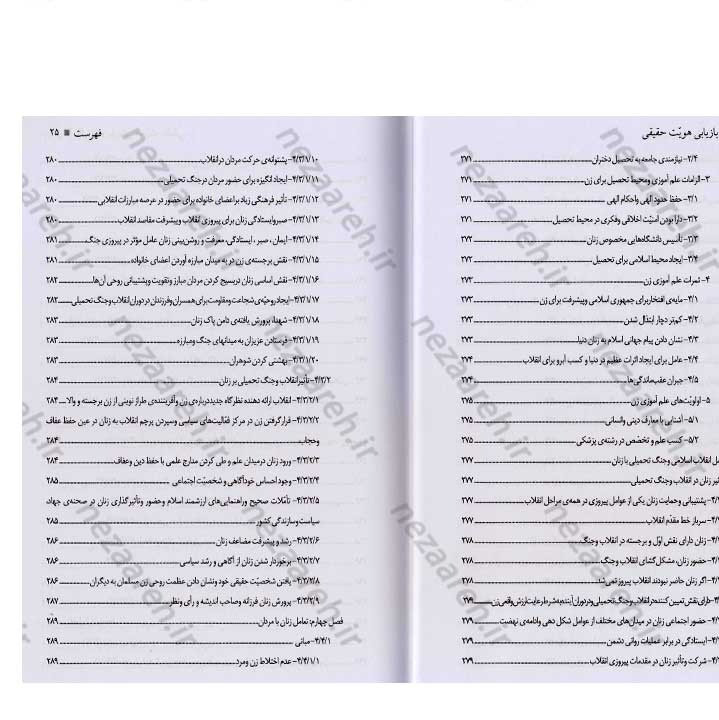 بازیابی هویّت حقیقی
۲/۴- نیازمندی جامعه به تحصیل دختران ۲۷۱
۳- الزامات علم آموزی و محیط تحصیل برای زن ۲۷۱
۳/۱- حفظ حدود الهی واحکام الهی ۲۷۱
۳/۲- دارا بودن امنیّت اخلاقی وفکری در محیط تحصیل ۲۷۱
۳/۳- تأسیس دانشگاه‌هایی مخصوص زنان ۲۷۲
۳/۴- ایجاد محیط اسلامی برای تحصیل ۲۷۲
۴- ثمرات علم آموزی زن ۲۷۳
۴/۱- مایه‌ی افتخار برای جمهوری اسلامی وپیشرفت برای زن ۲۷۳
۴/۲- کم‌تر دچار ابتذال شدن ۲۷۳
۴/۳- نشان دادن پیام جهانی اسلام به زنان دنیا ۲۷۳
۴/۴- عامل برای ایجاد اثرات عظیم در دنیا و کسب آبرو برای انقلاب ۲۷۴
۴/۵- جبران عقب‌ماندگی‌ها ۲۷۴
۵- اولویّت‌های علم آموزی زن ۲۷۵
۵/۱- آشنایی با معارف دینی وانسانی ۲۷۵
۵/۲- کسب علم و تخصّص در رشته‌ی پزشکی ۲۷۵
انقلاب اسلامی وجنگ تحمیلی با زنان ۲۷۷
زن در انقلاب وجنگ تحمیلی ۲۷۷
پشتیبانی وحمایت زنان یکی از عوامل پیروزی در همه‌ی مراحل انقلاب ۲۷۷
سرباز خط مقدّم انقلاب ۲۷۷
زنان دارای نقش اوّل و برجسته در انقلاب وجنگ ۲۷۸
حضور زنان، مشکل‌گشای انقلاب وجنگ ۲۷۸
اگر زنان حاضر نبودند انقلاب پیروز نمی‌شد ۲۷۸
دارای نقش تعیین کننده در انقلاب وجنگ تحمیلی ودر دوران آینده به شرط رعایت ارزش واقعی زن ۲۷۹
حضور اجتماعی زنان در میدان‌های مختلف از عوامل شکل دهی وادامه‌ی نهضت ۲۷۹
ایستادگی در برابر عملیات روانی دشمن ۲۷۹
شرکت وتأثیر زنان در مقدمات پیروزی انقلاب ۲۷۹
فهرست ■ ۲۵
۴/۳/۱/۱۰- پشتوانه‌ی حرکت مردان در انقلاب ۲۸۰
۴/۳/۱/۱۱- ایجاد انگیزه برای حضور مردان در جنگ تحمیلی ۲۸۰
۴/۳/۱/۱۲- تأثیر فرهنگی زیاد بر اعضای خانواده برای حضور در عرصه مبارزات انقلابی ۲۸۰
۴/۳/۱/۱۳- صبر وایستادگی زنان برای پیروزی انقلاب وپیشرفت مقاصد انقلاب ۲۸۰
۴/۳/۱/۱۴- ایمان، صبر، ایستادگی، معرفت و روشن‌بینی زنان عامل مؤثر در پیروزی جنگ ۲۸۱
۴/۳/۱/۱۵- نقش برجسته‌ی زن در به میدان مبارزه آوردن اعضای خانواده ۲۸۱
۴/۳/۱/۱۶- نقش اساسی زنان در بسیج کردن مردان مبارز وتقویت وپشتیبانی روحی آن‌ها ۲۸۲
۴/۳/۱/۱۷- ایجاد روحیّه‌ی شجاعت و مقاومت برای همسران وفرزندان در دوران انقلاب وجنگ تحمیلی ۲۸۲
۴/۳/۱/۱۸- شهدا، پرورش یافته‌ی دامن پاک زنان ۲۸۳
۴/۳/۱/۱۹- فرستادن عزیزان به میدانهای جنگ ومبارزه ۲۸۳
۴/۳/۱/۲۰- بهشتی کردن شوهران ۲۸۳
۴/۳/۲- تأثیر انقلاب وجنگ تحمیلی بر زنان ۲۸۴
۴/۳/۲/۱- انقلاب ارائه دهنده نظرگاه جدید درباره‌ی زن وآفریننده‌ی طراز نوینی از زن برجسته و والا ۲۸۴
۴/۳/۲/۲- قرار گرفتن زن در مرکز فعّالیت‌های سیاسی وسپردن پرچم انقلاب به زنان در عین حفظ عفاف
وحجاب ۲۸۴
۴/۳/۲/۳- ورود زنان در میدان علم و طی کردن مدارج علمی با حفظ دین وعفاف ۲۸۴
۴/۳/۲/۴- وجود احساس خودآگاهی و شخصیّت اجتماعی ۲۸۵
۴/۳/۲/۵- تأمّلات صحیح وراهنمایی‌های ارزشمند اسلام وحضور وتأثیر گذاری زنان در صحنه‌ی جهاد،
سیاست وسازندگی کشور ۲۸۵
۴/۳/۲/۶- رشد و پیشرفت مضاعف زنان ۲۸۶
۴/۳/۲/۷- برخوردار شدن زنان از آگاهی و رشد سیاسی ۲۸۶
۴/۳/۲/۸- یافتن شخصیّت حقیقی خود ونشان دادن عظمت روحی زن مسلمان به دیگران ۲۸۶
۴/۳/۲/۹- پرورش زنان فرزانه وصاحب اندیشه و رأی ونظر ۲۸۷
فصل چهارم: تعامل زنان با مردان ۲۸۹
۴/۴/۱- مبانی ۲۸۹
۴/۴/۱/۱- عدم اختلاط زن ومرد ۲۸۹
nezaareh.ir